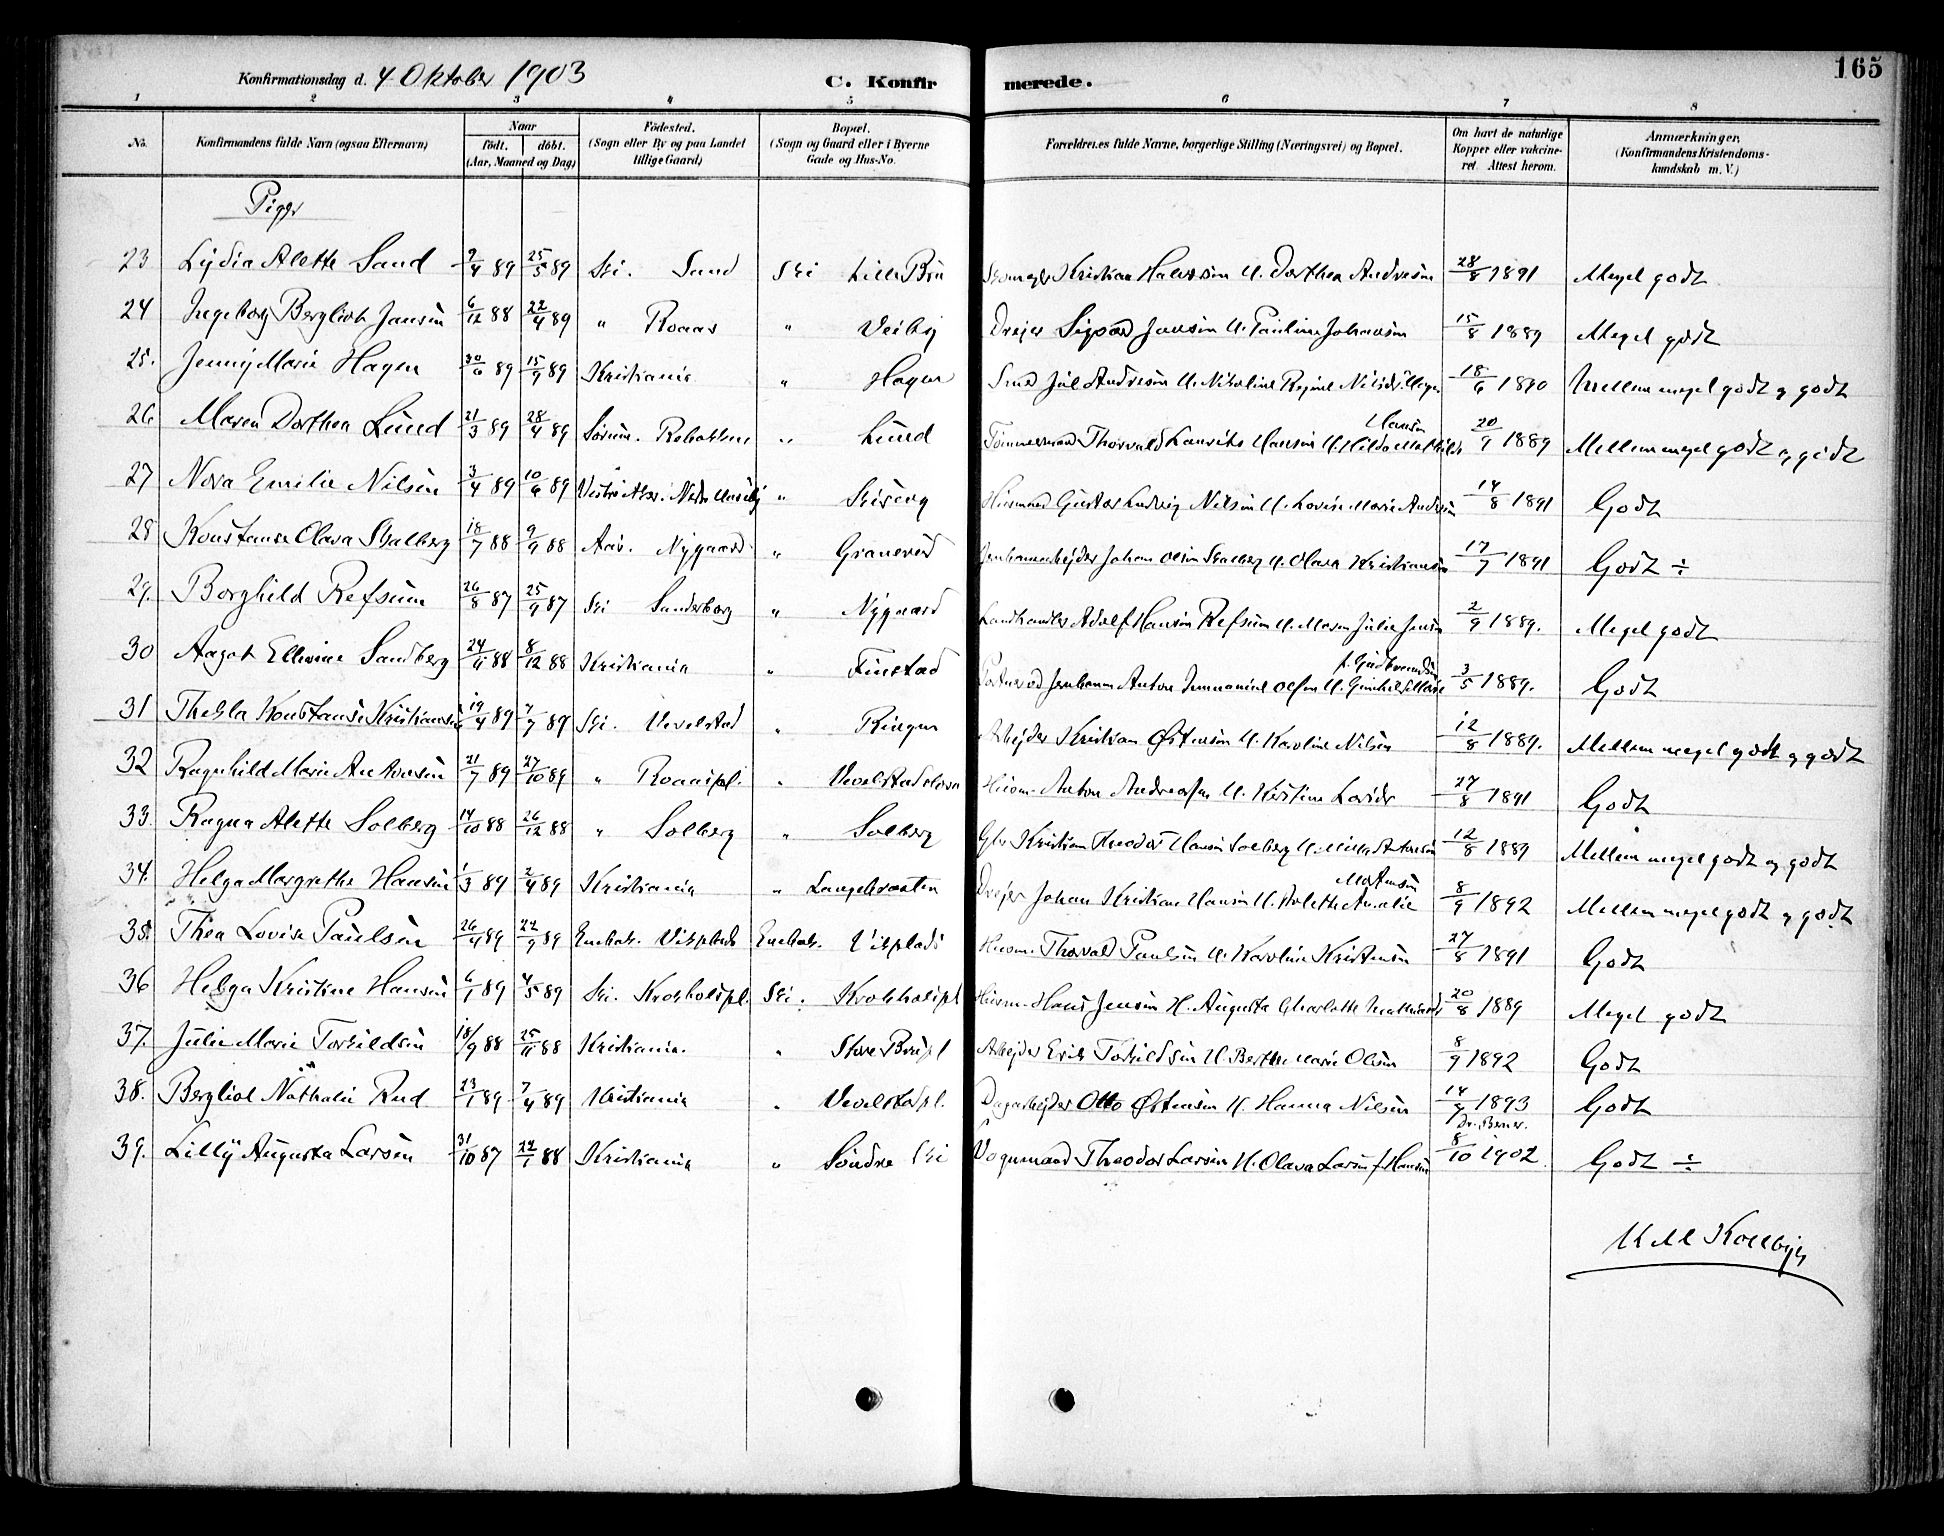 Konfirmationsdag d. 4 Oktober 1903 C. Konfirmerede. 165
1 2 3 4 5 6 7 8
No. Konfirmandens fulde Navn (ogsaa Efternavn) Naar født. døbt. (Aar, Maaned og Dag) Fødested. (Sogn eller By og paa Landet tillige Gaard) Bopæl. (Sogn og Gaard eller i Byerne Gade og Hus-No. Forældrenes fulde Navne, borgerlige Stilling (Næringsvei) og Bopæl. Om havt de naturlige Kopper eller vakcineret. Attest herom. Anmærkninger, (Konfirmandens Kristendomskundskab m. V.)
Piger
23 Lydia Alette Sand 9/4 89 25/5 89 Ski. Sand Ski Lille Bru Kristian Halvorsen & Dorthea Andresen 28/8 1891 Meget godt
24 Ingeborg Bergliot Jansen 6/12 88 22/4 89 " Roaas " Veiby Dreier Sigvard Jansen & Pauline Johansen 15/8 1889 Meget godt
25. Jenny Marie Hagen 30/6 89 15/9 89 Kristiania " Hagen Smed Jul Andresen & Nikoline Regine 18/6 1890 Mellem meget godt og godt
26 Maren Dorthea Lund 21/3 89 28/4 89 Sørum. " Lund Tømmermand Thorvald Laurits Hansen & Hilda Mathilde Hansen 20/9 1889 Mellem meget godt og godt
27 Nora Emilie Nilsen 3/4 89 10/6 89 Vestre Aker. " Skiskog Huusmand Gustav Ludvig Nilsen & Lovise Marie Andersen 14/8 1891 Godt
28 Konstanse Olava Skalberg 18/7 88 9/9 88 Aas. Nygaard " Granerud Jernbanearbejder Johan Olsen Skalberg & Olava Kristiansen 17/7 1891 Godt ÷
29. Borghild Refsum 26/8 87 25/9 87 Ski Sanderborg " Nygaard Landhandler Adolf Hansen Refsum & Maren Julie Jensen 2/9 1889. Meget godt
30 Aagot Ellevine Sandberg 24/11 88 8/12 88 Kristiania " Finstad Anton Immanuel Olsen & f. Gudbrandsen 3/5 1889. Godt
31 Thekla Konstanse Kristiansen 19/4 89 7/7 89 Ski. Vevelstad " Ringen Arbejder Kristian Østensen & Karoline Nilsen 12/8 1889. Mellem meget godt og godt
32 Ragnhild Marie Antonsen 21/7 89 27/10 89 " Roaaspl. " Vevelstad Huusm. Anton Andreasen & Kirstine Larsdr 27/8 1891 Godt
33. Ragna Alette Solberg 14/10 88 26/12 88 " Solberg " Solberg Gbr Kristian Theodor Hansen Solberg & Milla Antonsen 12/8 1889 Mellem meget godt og godt
34. Helga Margrethe Hansen 1/3 89 2/4 89 Kristiania " Langebraaten Dreier Johan Kristian Hansen & Amalie Mortensen 8/9 1892 Mellem meget godt og godt
35. Thea Lovise Paulsen 26/4 89 22/9 89 Enebak. Visplads Enebak. Visplads Huusm. Thorvald Paulsen & Karoline Kristensen 27/8 1891 Godt
36 Helga Kristine Hansen 6/1 89 4/5 89 Ski. Krokholspl. Ski. Krokholspl Huusm. Hans Jensen & Augusta Charlotte 20/8 1889 Meget godt
37. Julie Marie Torkildsen 18/9 88 25/11 88 Kristiania. " Store Brupl Arbejder Erik Torkildsen & Berthe Marie Olsen 8/9 1892 Godt
38. Bergliot Nathalie Rud 23/1 89 7/4 89 Kristiania " Vevelstadpl. Dagarbejder Otto Østensen & Hanna Nilsen 14/9 1893 Godt
Dr. Berner.
39. Lilly Augusta Larsen 31/10 87 22/1 88 Kristiania " Søndre Ski Vognmand Theodor Larsen & Olava Larsen f. Hansen 8/10 1902 Godt ÷